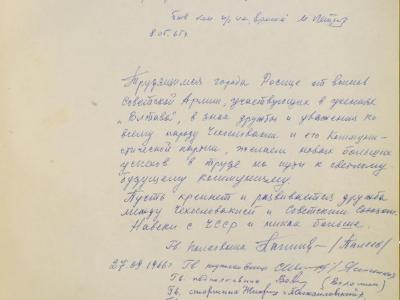 быв ком
8.05.65г
Трудящимся города Росице от воинов
Советской Армии, участвующих в учениях
„Влтава", в знак дружбы и уважения ко
всему народу Чехословакии и его Коммуни-
стической партии, желаем новых больших
успехов в труде на пути к светлому
будущему коммунизму.
Пусть крепнет и развивается дружба
между Чехословакией и Советским Союзом.
Навеки с ЧССР и никак больше.
Гв полковник
27.09.1966г Гв
Гв. подполковник
Гв. старшина